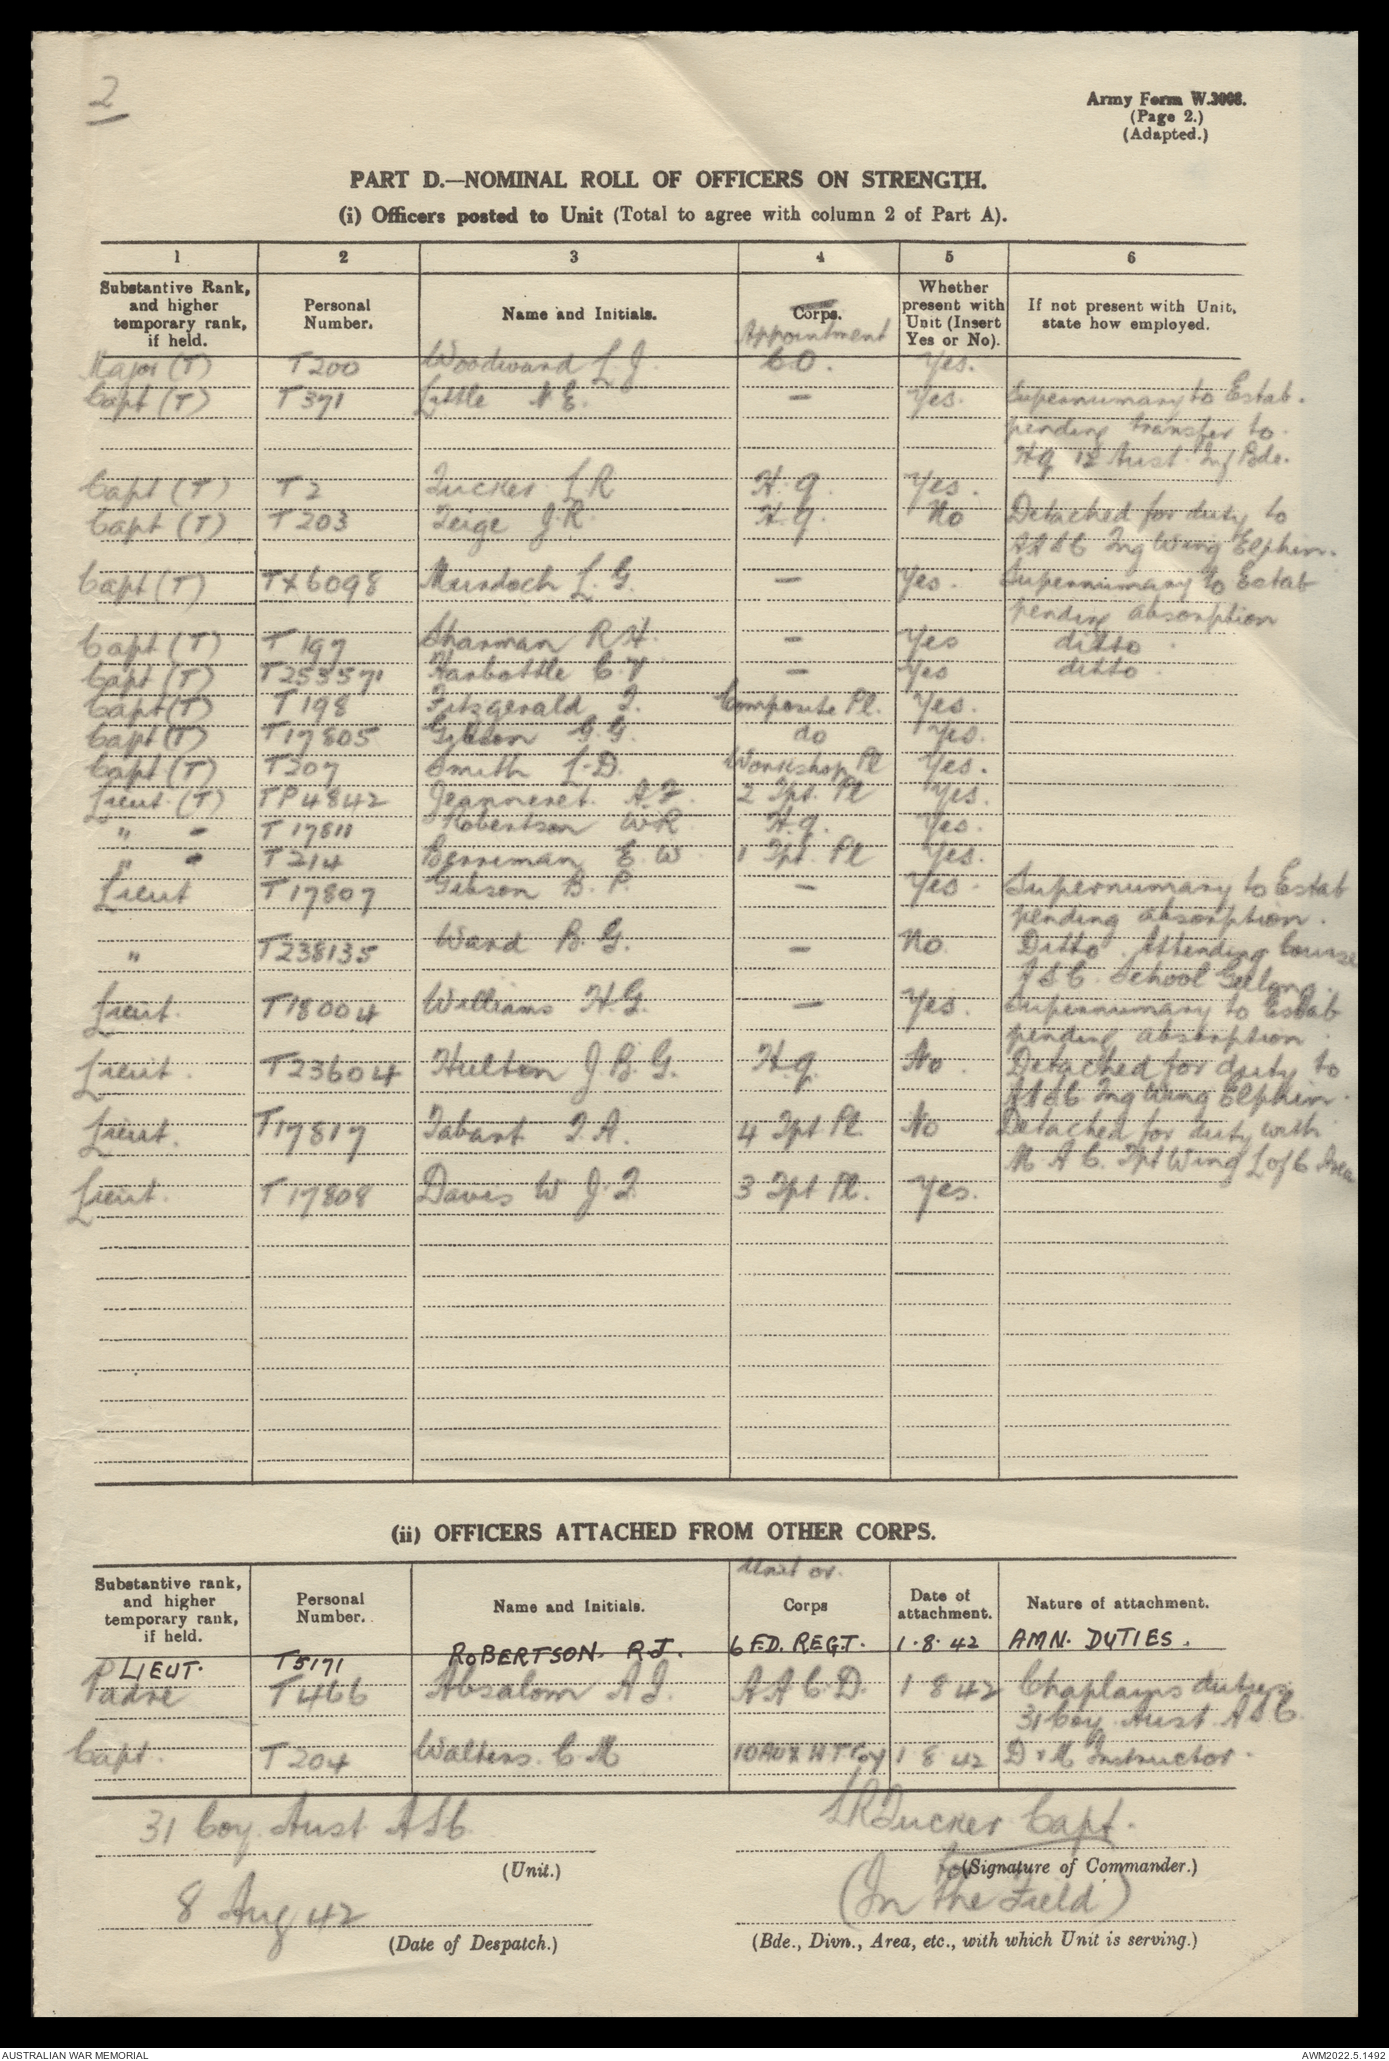 2
Army Form W.3008.
(Page 2.)
(Adapted.)
PART D.—NOMINAL ROLL OF OFFICERS ON STRENGTH.
(i) Officers posted to Unit (Total to agree with column 2 of Part A).
1 2 3 4 5 6
Substantive Rank, and higher temporary rank, if held. Personal Number. Name and Initials. Corps. Appointment Whether present with Unit (Insert Yes or No). If not present with Unit, state how employed.
Major (T) T200 Woodward L J. C.O. Yes.
Capt (T) T371 Little N E. — Yes. Supernumary to Estab.
pending transfer to
HQ 12 Aust. Inf Bde.
Capt (T) T2 Tucker L R H.q. Yes.
Capt (T) T203 Teige J.R. H.q. No Detached for duty to
AASC Tng Wing Elphin.
Capt (T) TX6098 Murdoch L. G. — Yes. Supernumary to Estab
pending absorption
Capt (T) T197 Sharman R H. — Yes ditto
Capt (T) T253571 Harbottle C. V — Yes ditto.
Capt (T) T198 Fitzgerald T. Composite Pl. Yes.
Capt (T) T17805 Gibson G.G. do Yes.
Capt (T) T207 Smith L.D. Workshop Pl Yes.
Lieut. (T) TP4842 Jeanneret. A.F. 2 Tpt. Pl Yes.
" - T17811 Robertson W.R H.q. Yes.
" - T214 Berriman E. W. 1 Tpt. Pl Yes.
Lieut T17807 Gibson B. P. — Yes. Supernumary to Estab
pending absorption.
" T238135 Ward B. G. — No. Ditto. Attending Course
ASC. School Geelong.
Lieut. T18004 Williams H.G. — Yes. Supernumary to Estab
pending absorption.
Lieut. T23604 Hulton J.B.G. H.q. No. Detached for duty to
AASC Tng Wing Elphin.
Lieut. T17817 Tabart T.A. 4 Tpt Pl. No Detached for duty with
M.A.C. Tpt Wing L of C Area
Lieut. T17808 Davis W J.T. 3 Tpt Pl. Yes.
(ii) OFFICERS ATTACHED FROM OTHER CORPS.
Substantive rank, and higher temporary rank, if held. Personal Number. Name and Initials. Unit or Corps Date of attachment. Nature of attachment.
LIEUT. T5171 ROBERTSON R.J. 6 FD. REGT. 1.8.42 AMN. DUTIES.
Padre T466 Absalom A I. A A C. D. 1 8 42 Chaplains duties
31 Coy. Aust. ASC.
Capt. T204 Walters. C. M 10 AUX H T Coy 1 8 42 D & M Instructor.
31 Coy. Aust ASC LR Tucker Capt.
(Unit.) for (Signature of Commander.)
8 Aug 42 (In the Field)
(Date of Despatch.) (Bde., Divn., Area, etc., with which Unit is serving.)
AUSTRALIAN WAR MEMORIAL AWM2022.5.1492